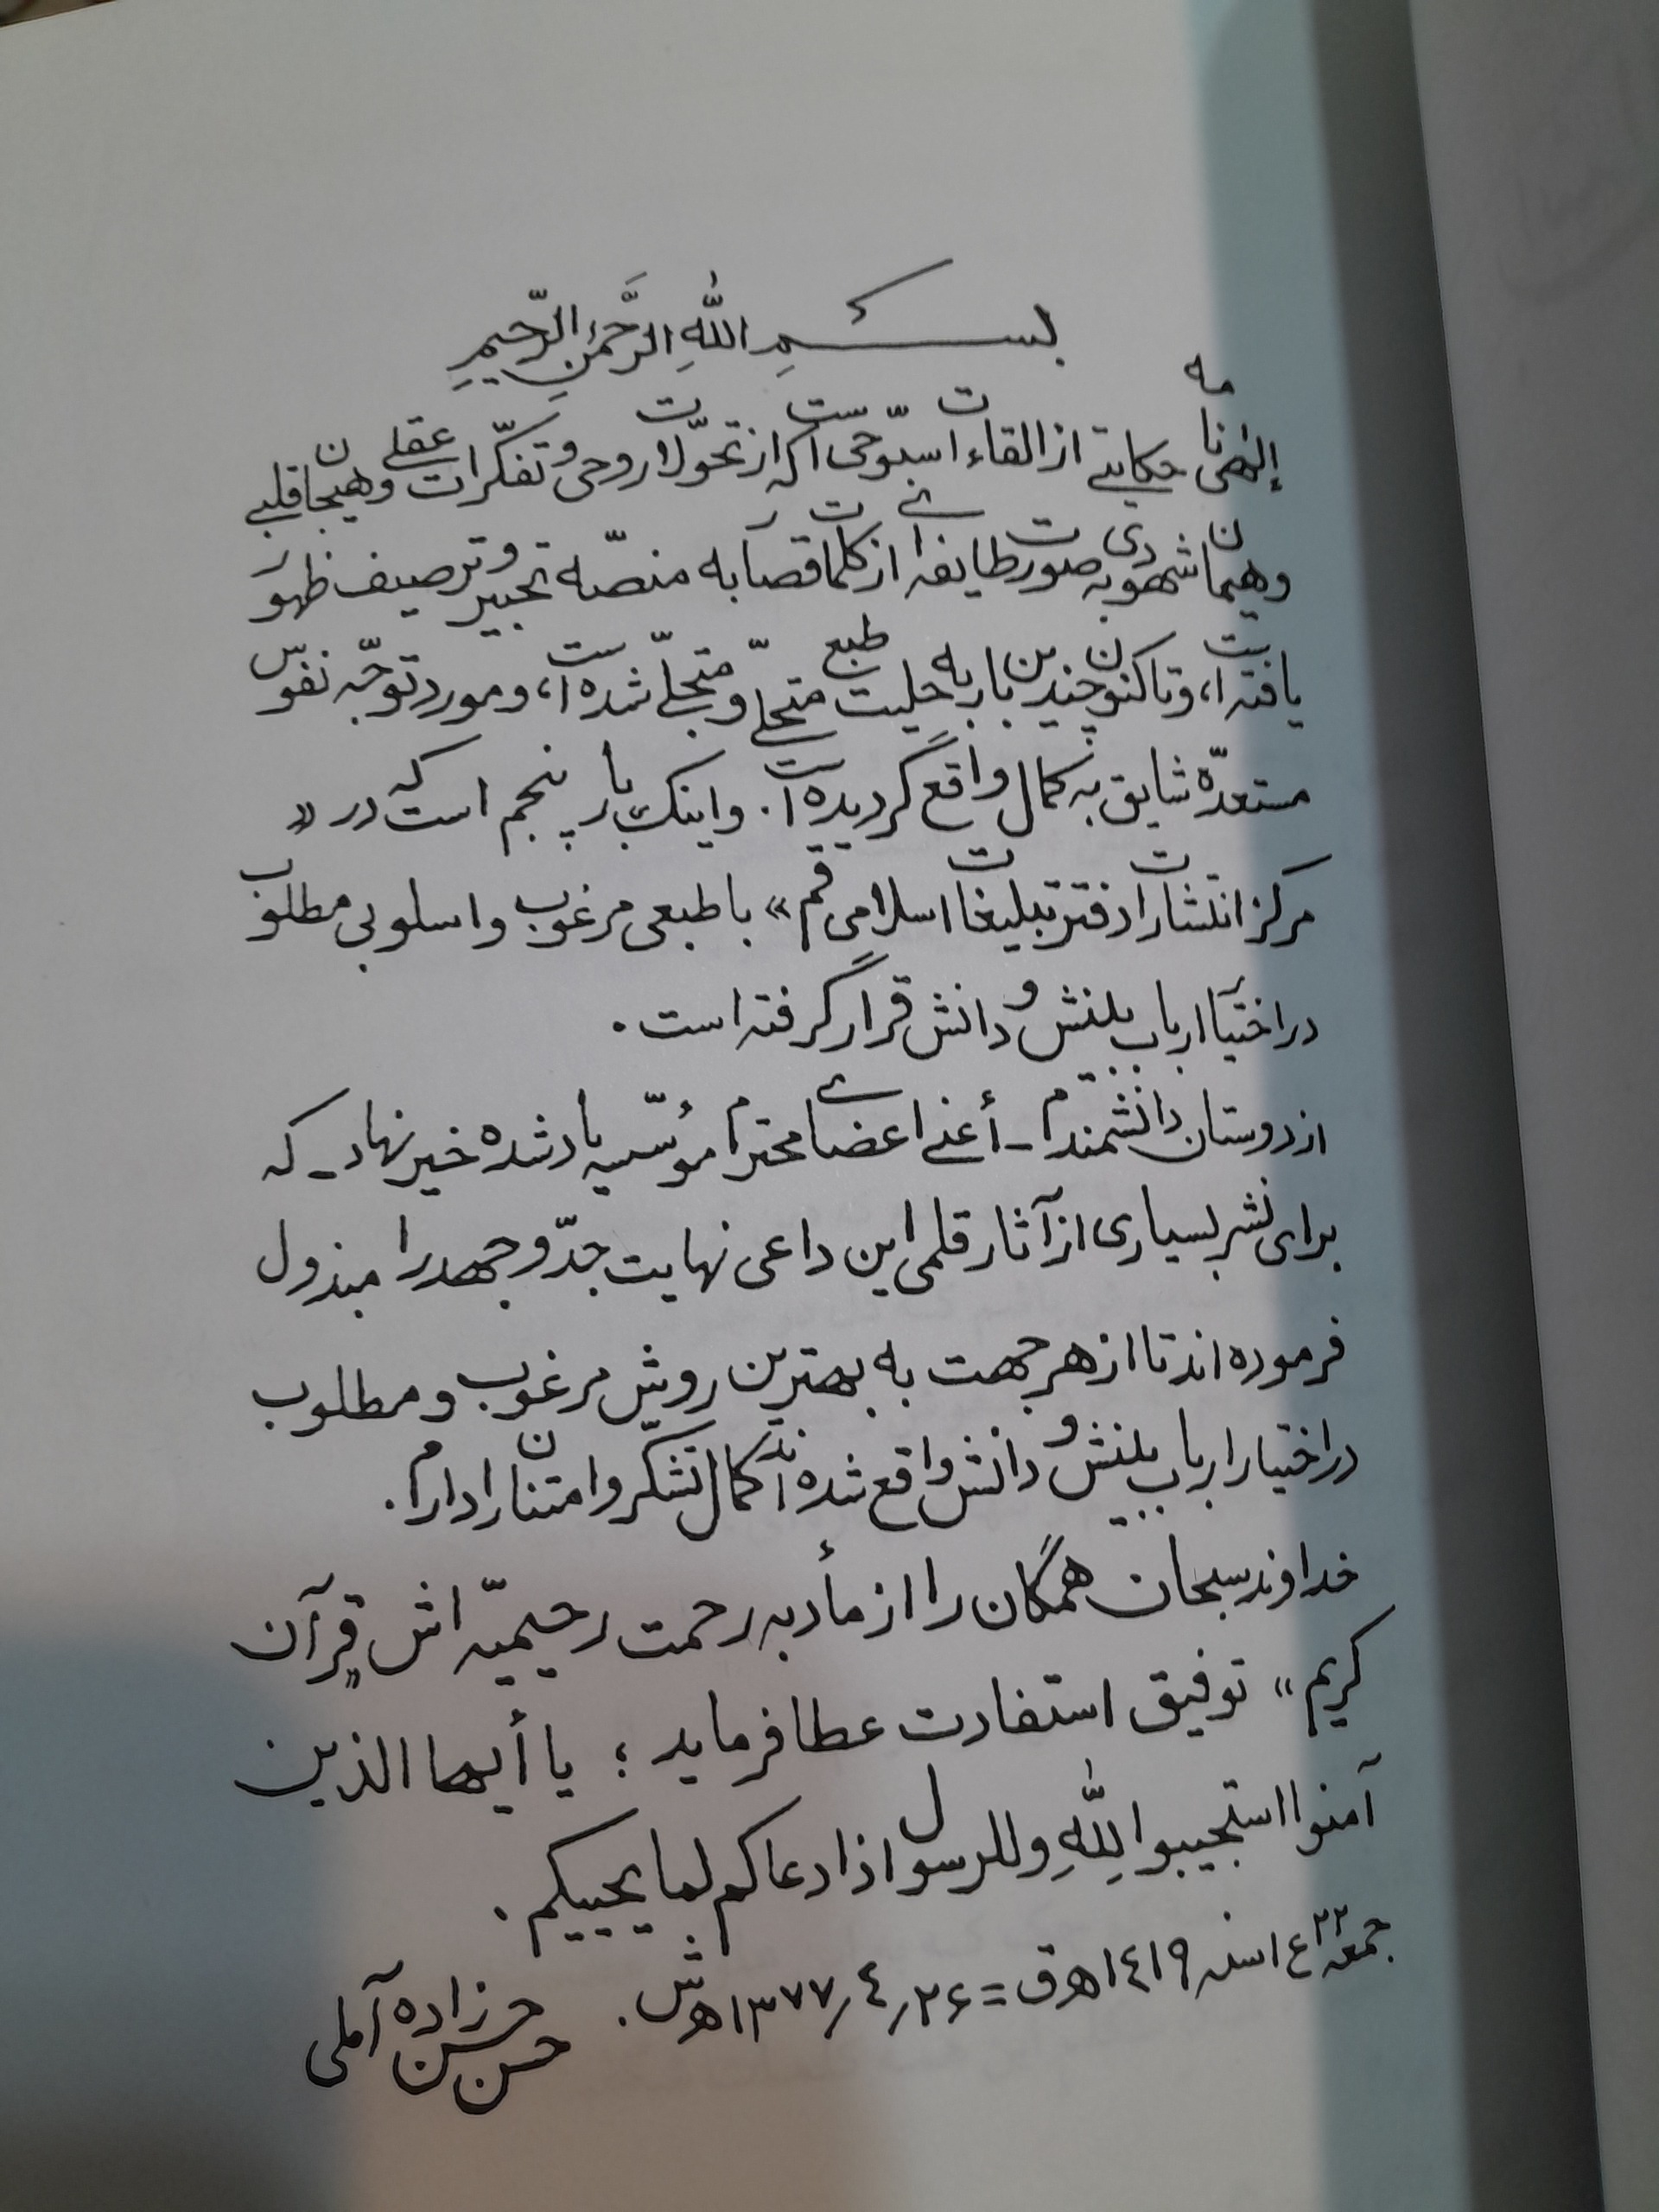 بِسْمِ اللهِ الرَّحْمٰنِ الرَّحِیمِ
إلهی‌نامه حکایتی از القاءات سبّوحی است که از تحوّلات روحی و تفکّرات عقلی و هیجان قلبی
و هیمان شهودی به صورت طایفه‌ای از کلمات قصار به منصّه تحبیر و ترصیف ظهور
یافته است، و تاکنون چندین بار به حلیت طبع متحلّی و متجلّی شده است، و مورد توجّه نفوس
مستعدّهٔ شایق به کمال واقع گردیده است. و اینک بار پنجم است که در «
مرکز انتشارات دفتر تبلیغات اسلامی قم» با طبعی مرغوب و اسلوبی مطلوب
در اختیار ارباب بینش و دانش قرار گرفته است.
از دوستان دانشمندم ـ أعنی اعضای محترم مؤسّسه یاد شده خیر نهاد ـ که
برای نشر بسیاری از آثار قلمی این داعی نهایت جدّ و جهد را مبذول
فرموده‌اند تا از هر جهت به بهترین روش مرغوب و مطلوب
در اختیار ارباب بینش و دانش واقع شده‌اند کمال تشکّر و امتنان را دارم.
خداوند سبحان همگان را از مأدبه رحمت رحیمیّه‌اش «قرآن
کریم» توفیق استفادت عطا فرماید؛ یا أیها الذین
آمنوا استجیبوا لِلّٰهِ وللرسول اذا دعاکم لما یحییکم.
جمعه ۲۲ ع ۱ سنه ۱٤۱۹ هـ ق = ۲۶/٤/۱۳۷۷ هـ ش.
حسن حسن زاده آملی